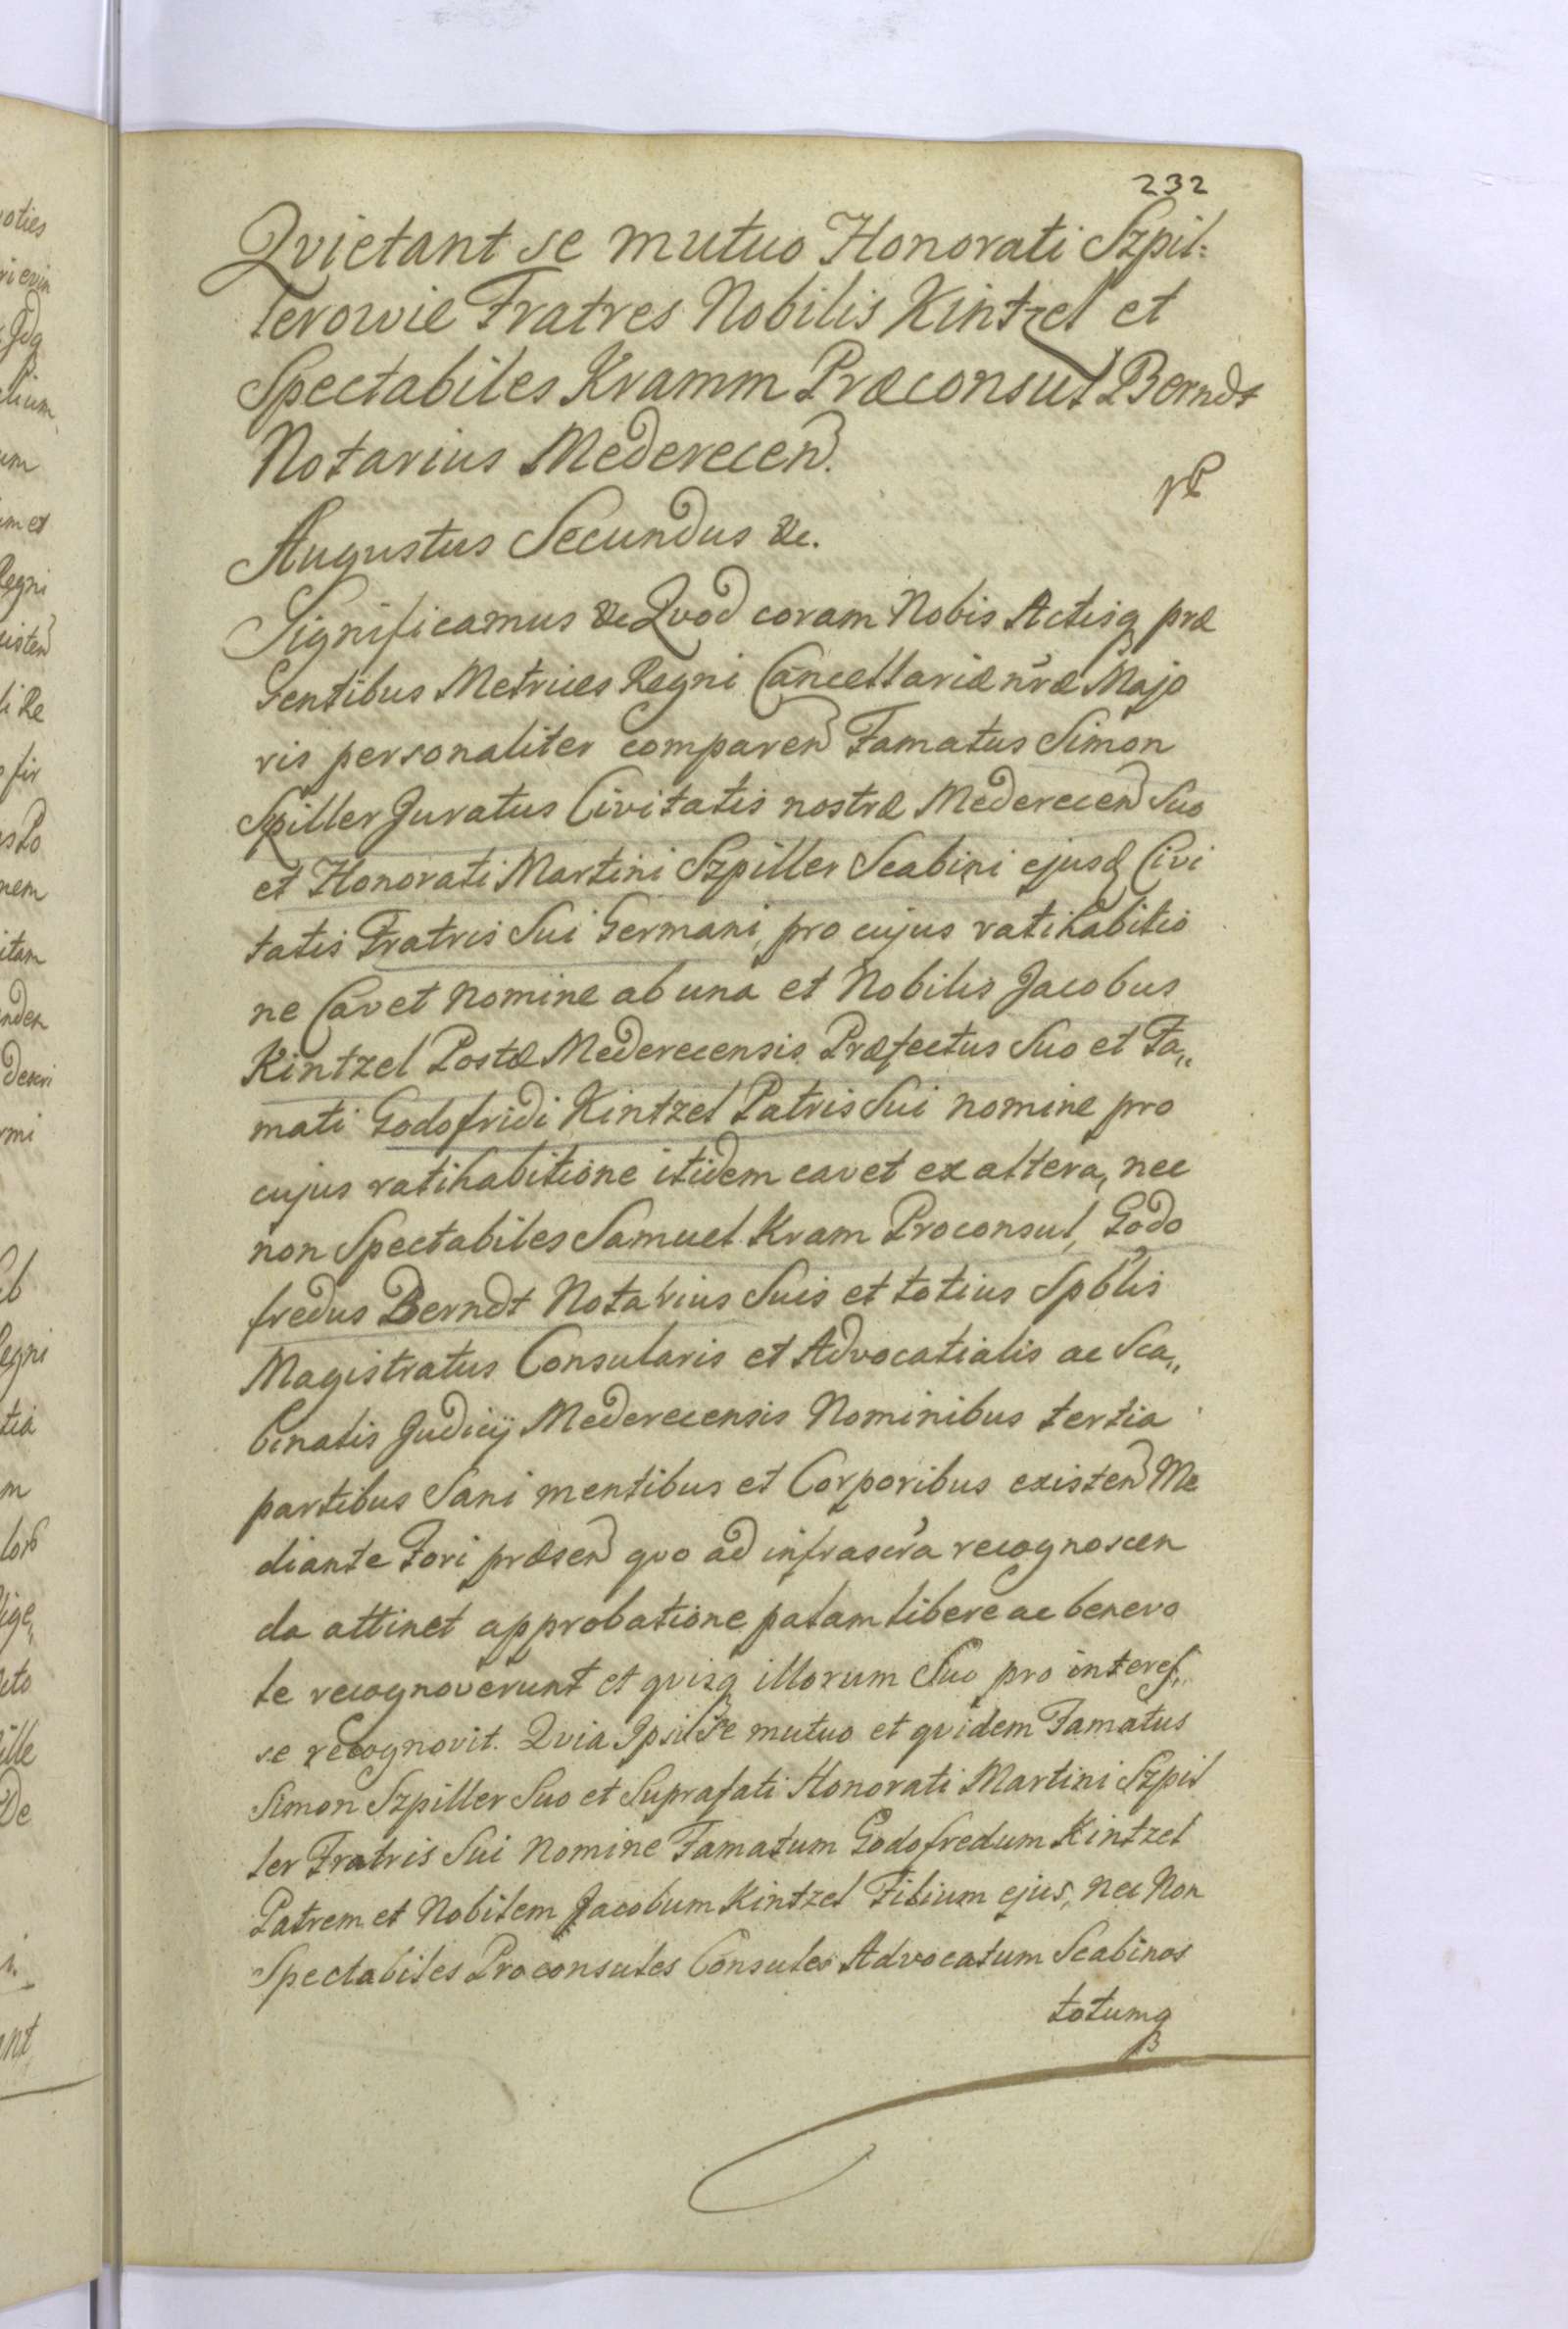 232
Qvietant se mutuo Honorati Szpil=
lerowie Fratres Nobilis Kintzel et
Spectabiles Kramm Præconsul Berndt
Notarius Mederecen.
Augustus Secundus &c.
Significamus &c Qvod coram Nobis Actisq præ
sentibus Metrices Regni Cancellariæ nræ Majo
ris personaliter comparen Famatus Simon
Szpiller Juratus Civitatis nostræ Mederecen Suo
et Honorati Martini Szpiller Scabini ejusd Civi
tatis Fratris Sui Germani, pro cujus ratihabitio
ne Cavet Nomine ab una et Nobilis Jacobus
Kintzel Postæ Mederecensis Præfectus Suo et Fa„
mati Godofridi Kintzel Patris Sui nomine pro
cujus ratihabitione itidem cavet ex altera, nec
non Spectabiles Samuel Kram Proconsul, Godo
fredus Berndt Notarius Suis et totius Spblis
Magistratus Consularis et Advocatialis ac Sca„
binalis Judicij Mederecensis Nominibus tertia
partibus Sani mentibus et Corporibus existen Me
diante Fori præsen qvo ad infrascra recognoscen
da attinet approbatione palam libere ac benevo
le recognoverunt et qvisq illorum Suo pro interes„
se recognovit. Qvia Ipsi Se mutuo et qvidem Famatus
Simon Szpiller Suo et Suprafati Honorati Martini Szpil
ler Fratris Sui Nomine Famatum Godofredum Kintzel
Patrem et Nobilem Jacobum Kintzel Filium ejus, nec Non
Spectabiles Proconsules Consules Advocatum Scabinos
totumq